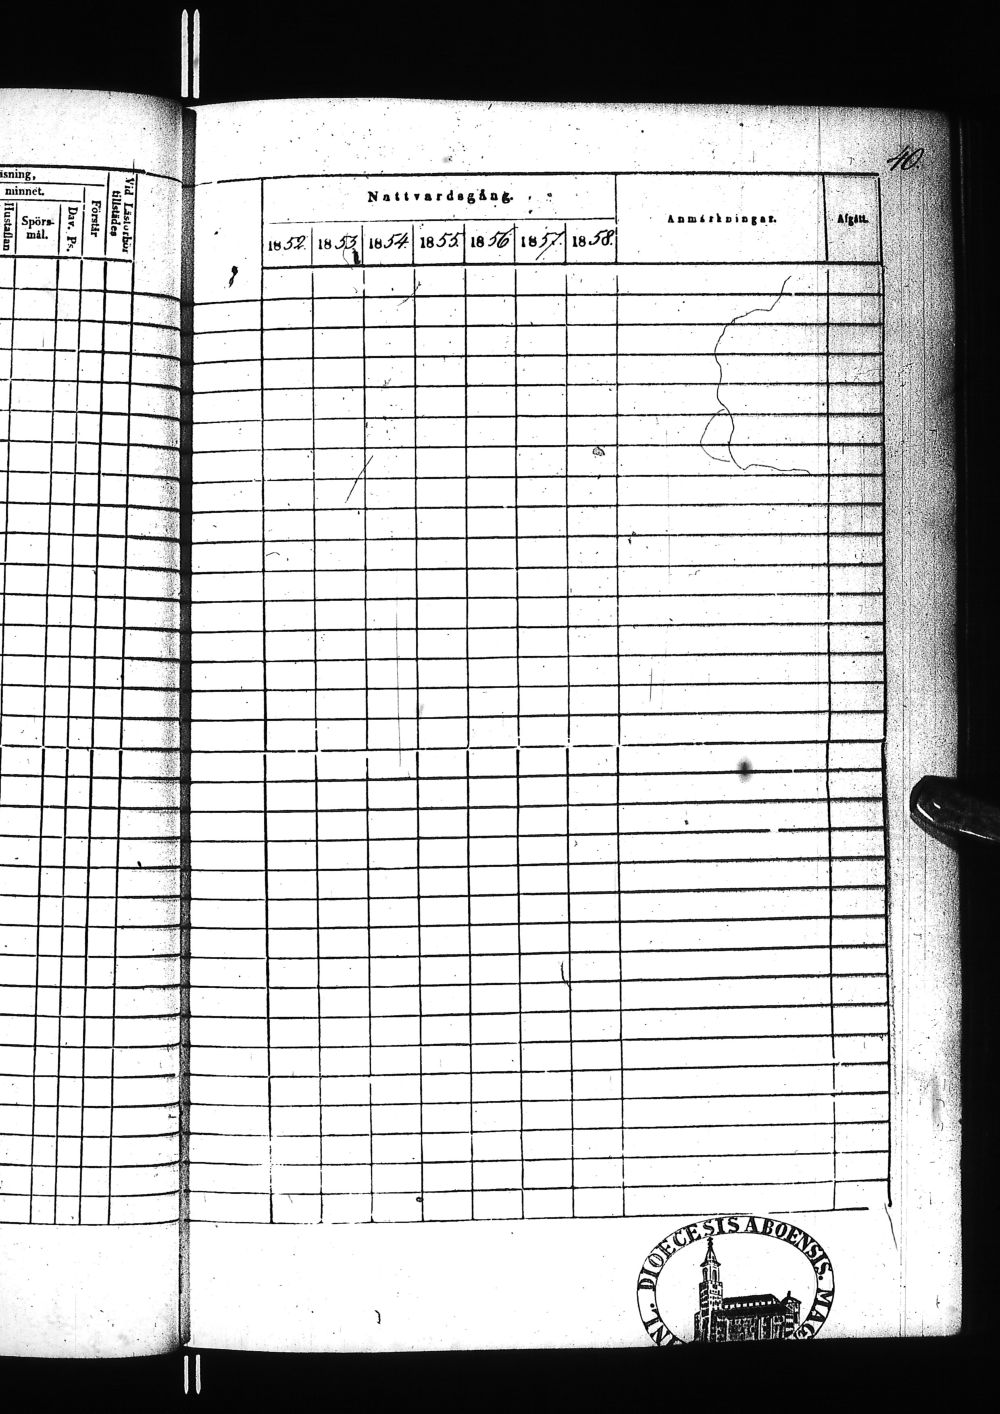 40
äsning,
minnet.
Hustaflan
Spörs-
mål.
Dav. Ps.
Förstår
Vid Läsförhör
tillstädes
Nattvardsgång.
Anmärkningar.
Afgått.
1852. 1853 1854 1855. 1856 1857. 1858.
DIOECESIS ABOENSIS. MAG